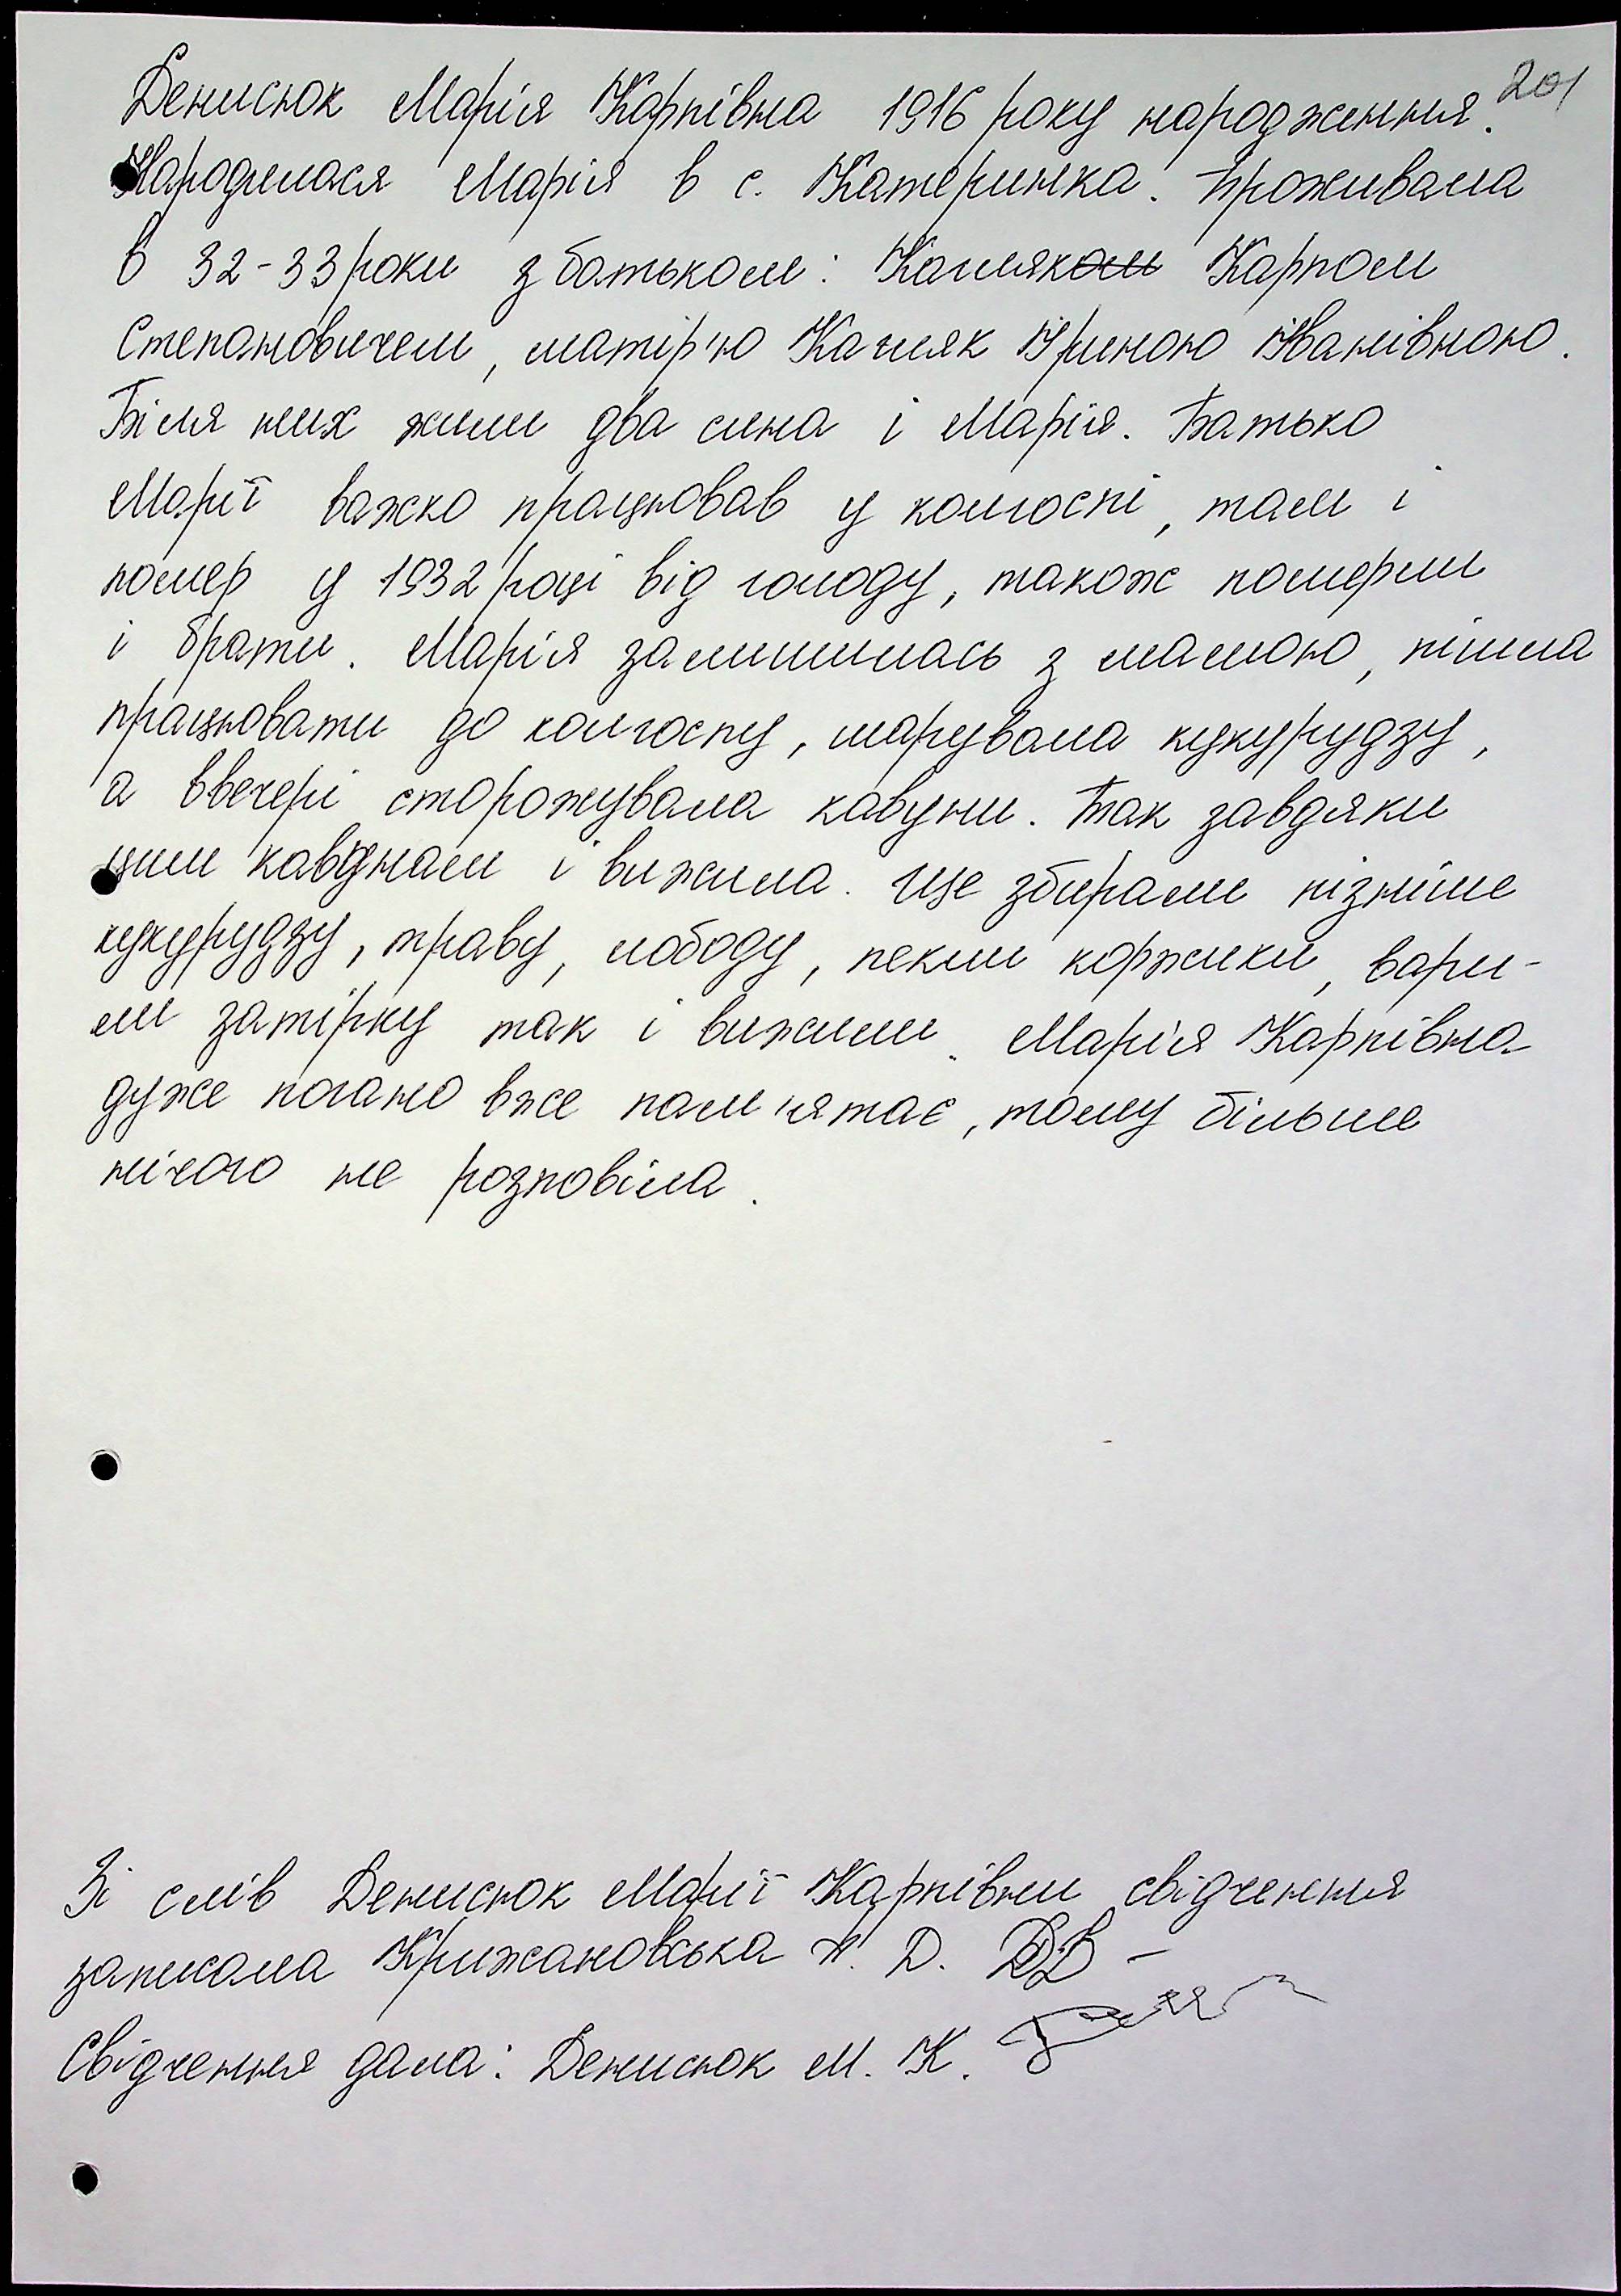 201
Денисюк Марія Карпівна 1916 року народження.
Народилася Марія в с. Катеринка. Проживала
в 32-33 роки з батьком: Кагляком Карпом
Степановичем, матір'ю Кагляк Іриною Іванівною.
Біля них жили два сина і Марія. Батько
Марії важко працював у колгоспі, там і
помер у 1932 році від голоду, також померли
і брати. Марія залишилась з мамою, пішла
працювати до колгоспу, шарувала кукурудзу,
а ввечері сторожувала кавуни. Так завдяки
цим кавунам і вижила. Ще збирали пізніше
кукурудзу, траву, лободу, пекли коржики, вари-
ли затірку так і вижили. Марія Карпівна
дуже погано вже пам'ятає, тому більше
нічого не розповіла.
Зі слів Денисюк Марії Карпівни свідчення
записала Крижановська Д.
Свідчення дала: Денисюк М. К.